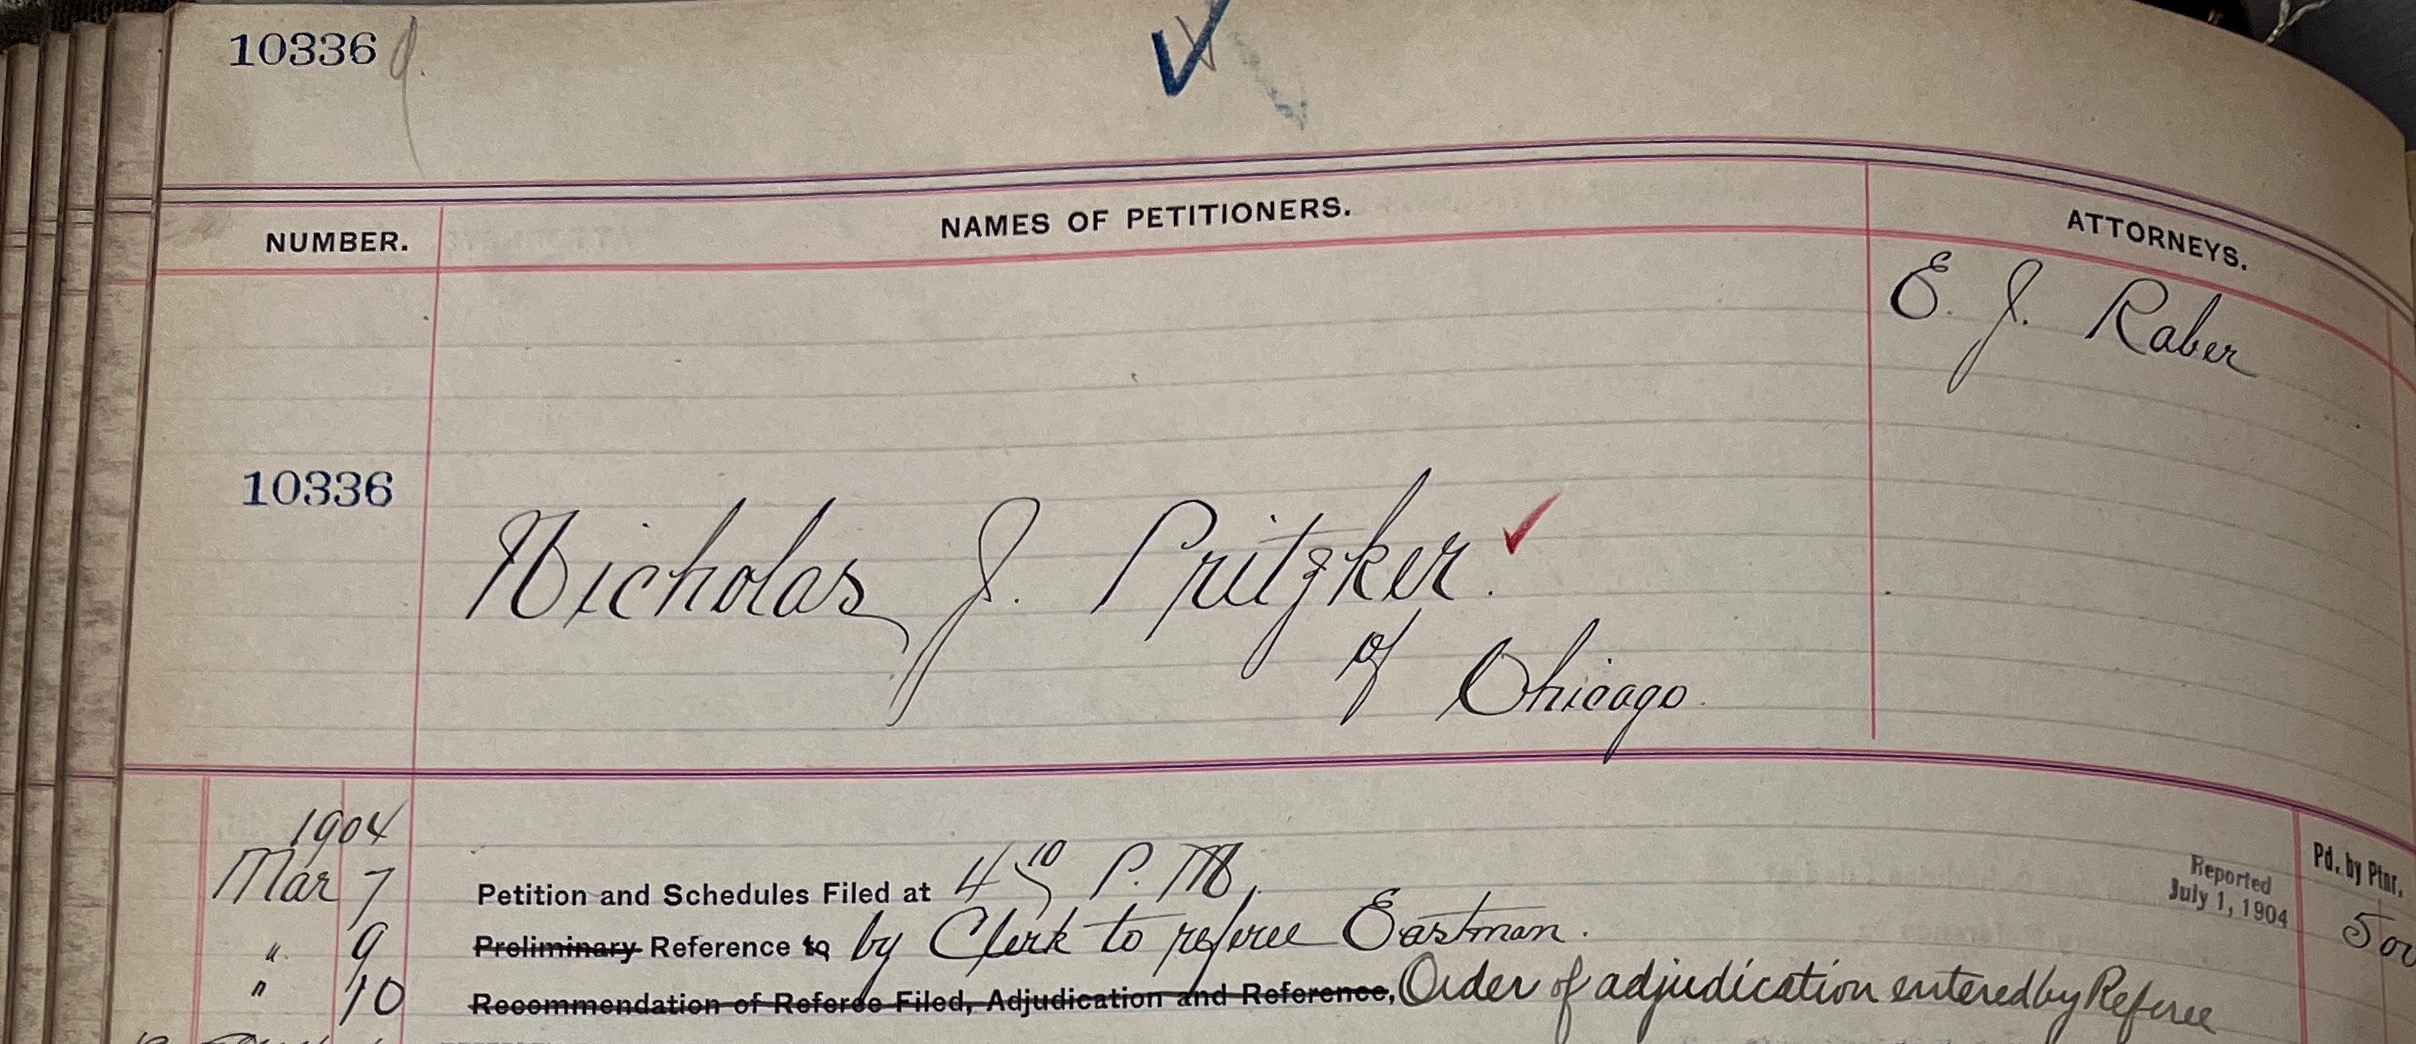 10336
NUMBER. NAMES OF PETITIONERS. ATTORNEYS.
E. J. Raber
10336 Nicholas J. Pritzker.
of Chicago.
1904
Mar 7 Petition and Schedules Filed at 4 10 P. M.
Reported July 1, 1904
Pd. by Ptnr.
" 9 Preliminary Reference to by Clerk to referee Eastman.
" 10 Recommendation of Referee Filed, Adjudication and Reference, Order of adjudication entered by Referee